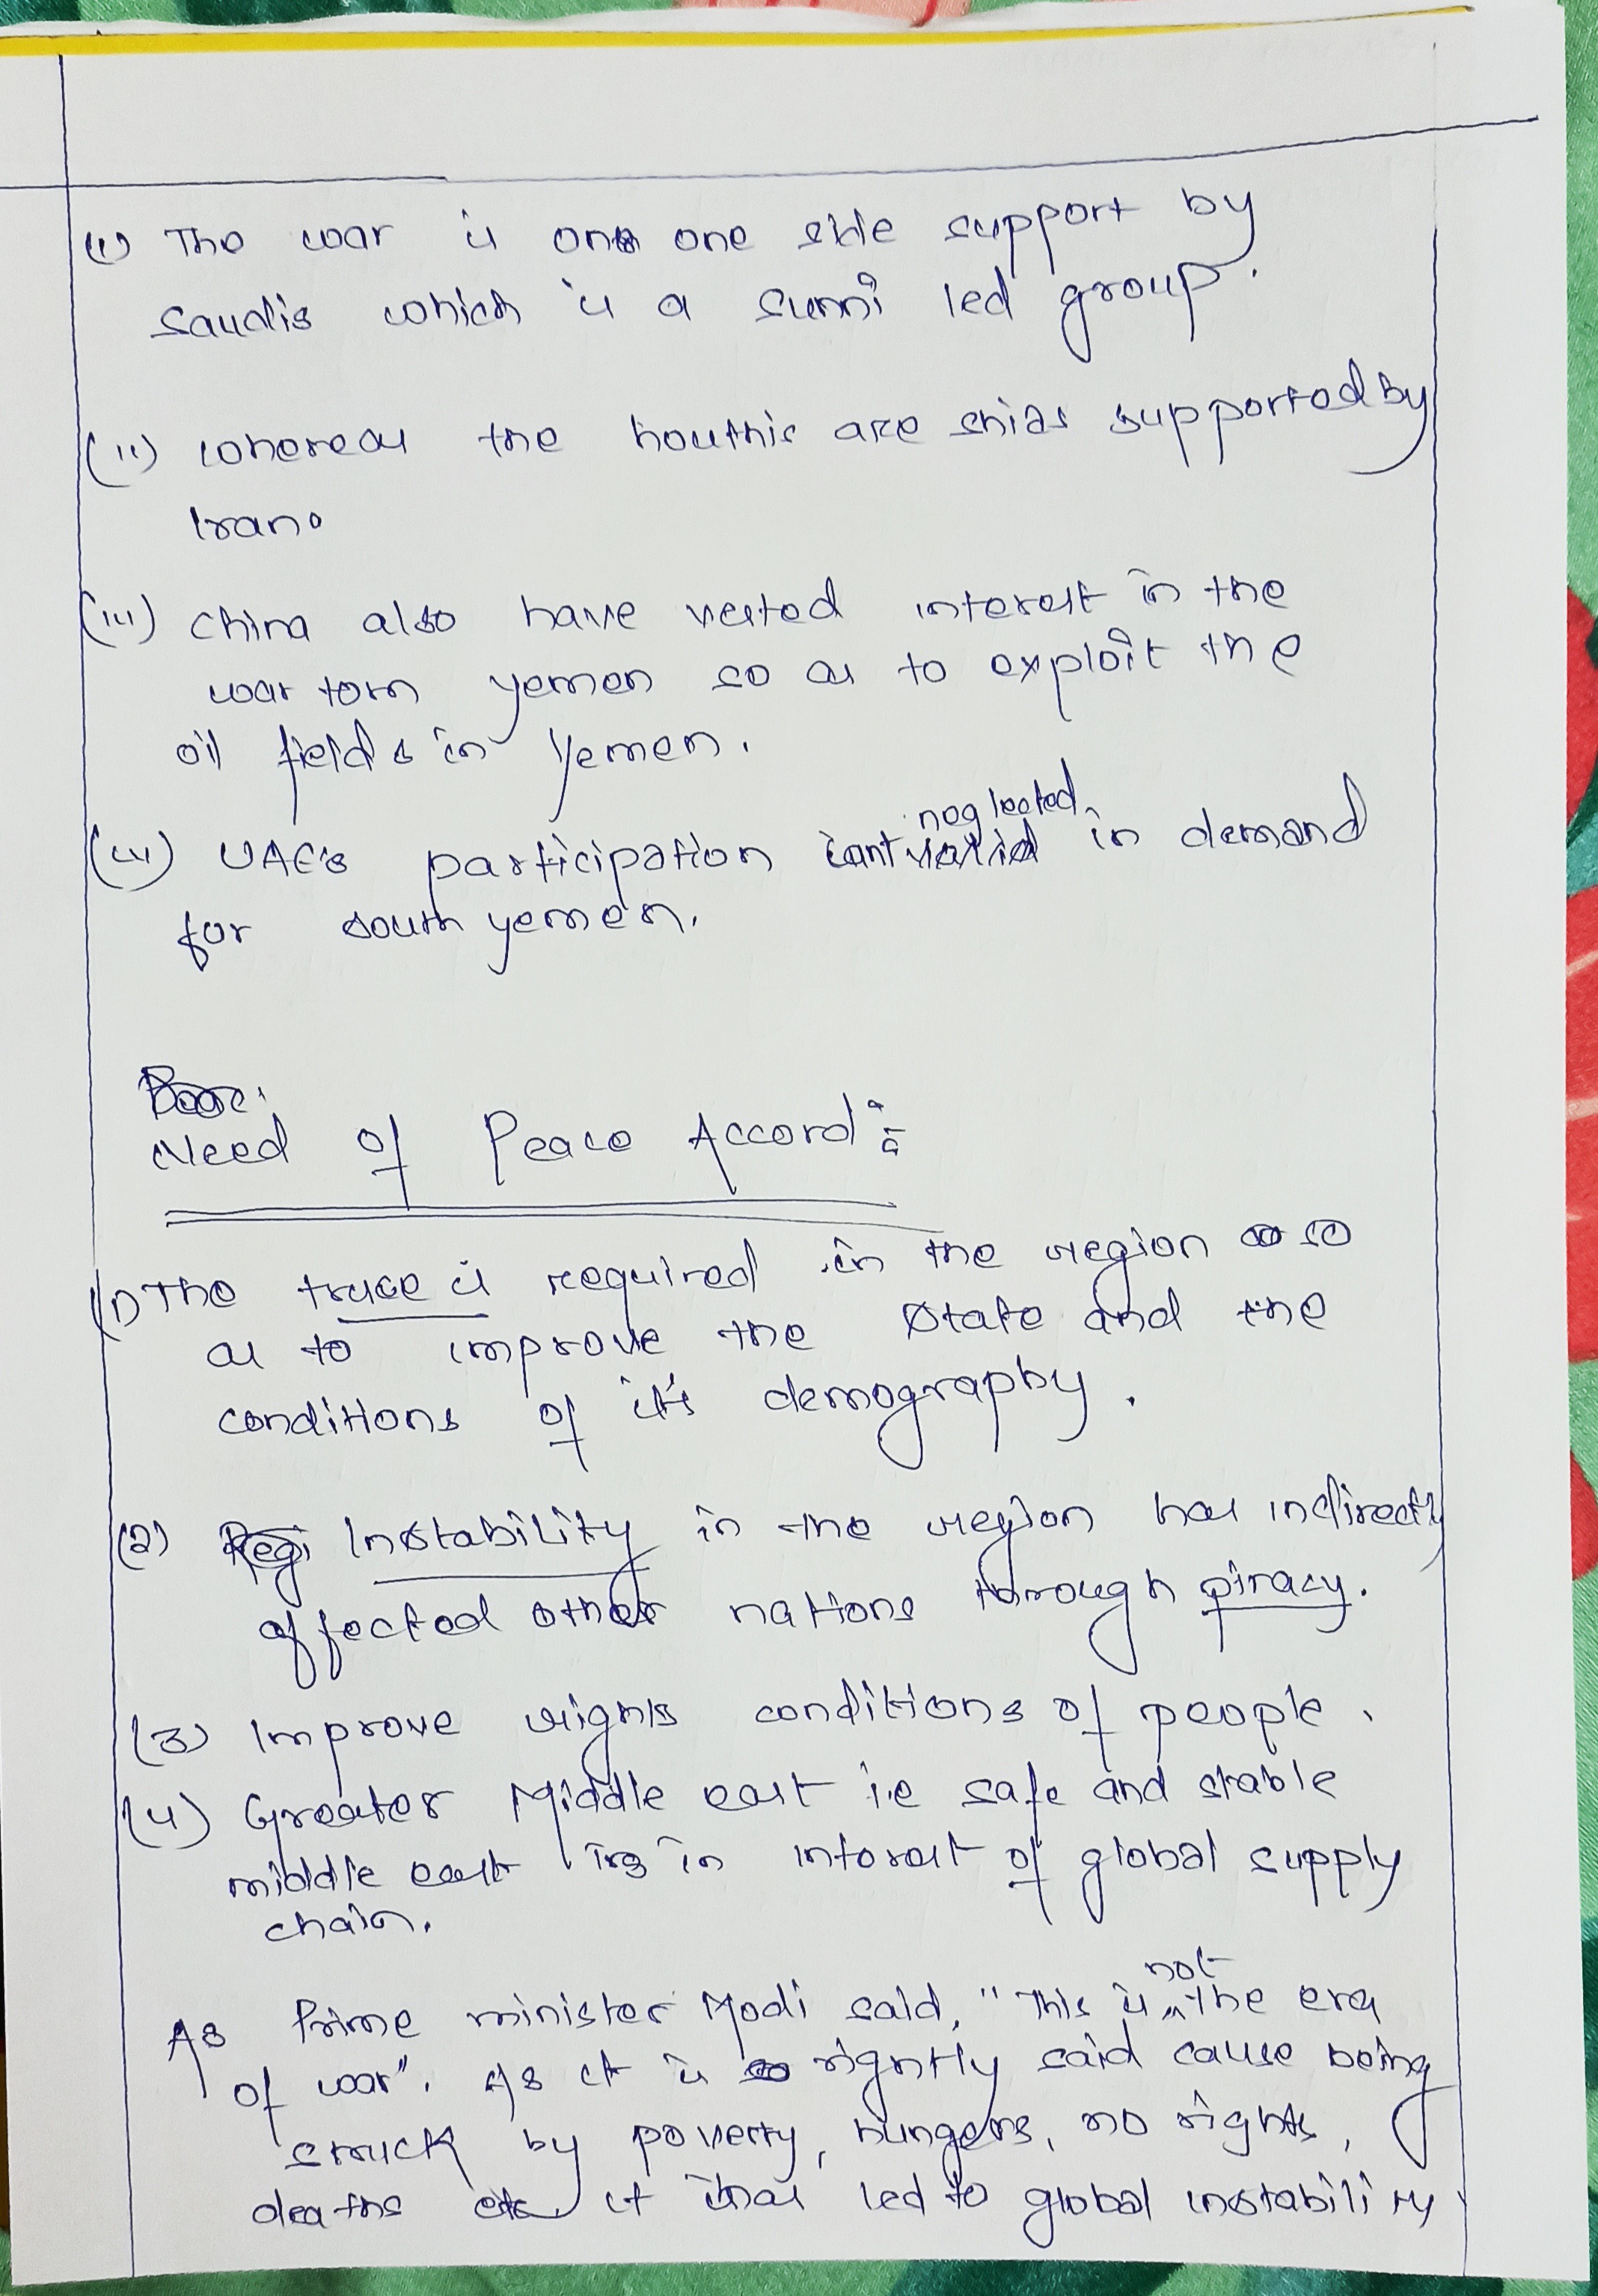 (i) The war is on one side support by
Saudis which is a Sunni led group.
(ii) whereas the houthis are shias supported by
Iran.
(iii) China also have vested interest in the
war torn yemen so as to exploit the
oil fields in Yemen.
(iv) UAE's participation cant neglected in demand
for south yemen.
Need of Peace Accord:
(1) The truce is required in the region so
as to improve the state and the
conditions of it's demography.
(2) Instability in the region has indirectly
affected other nations through piracy.
(3) Improve rights conditions of people.
(4) Greater Middle east i.e safe and stable
middle east is in interest of global supply
chain.
As Prime minister Modi said, "This is not the era
of war". As it is rightly said cause being
struck by poverty, hungers, no rights,
deaths etc it has led to global instability